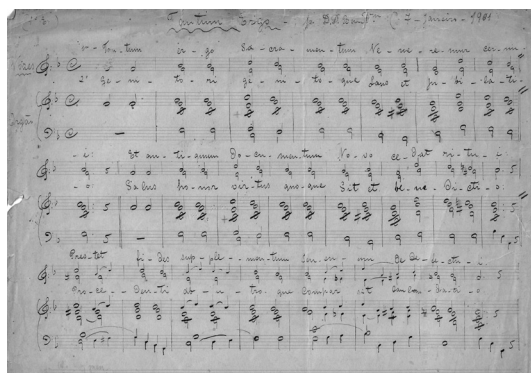 Tantum Ergo - Janeiro - 1901
1º Tan-tum er-go Sa-cra-men-tum Ve-ne-re-mur cer-nu-
2º Ge-ni-to-ri ge-ni-to-que Laus et ju-bi-la-ti-
-i: Et an-ti-quum Do-cu-mentum No-vo ce-dat ri-tu-i:
-o: Salus honor virtus quoque Sit et be-ne-Dicti-o:
Præs-tet fi-des sup-ple-mentum Sen-su-um De-fe-ctu-i.
Pro-ce-Denti ab u-tro-que Compar sit lau-Da-ti-o